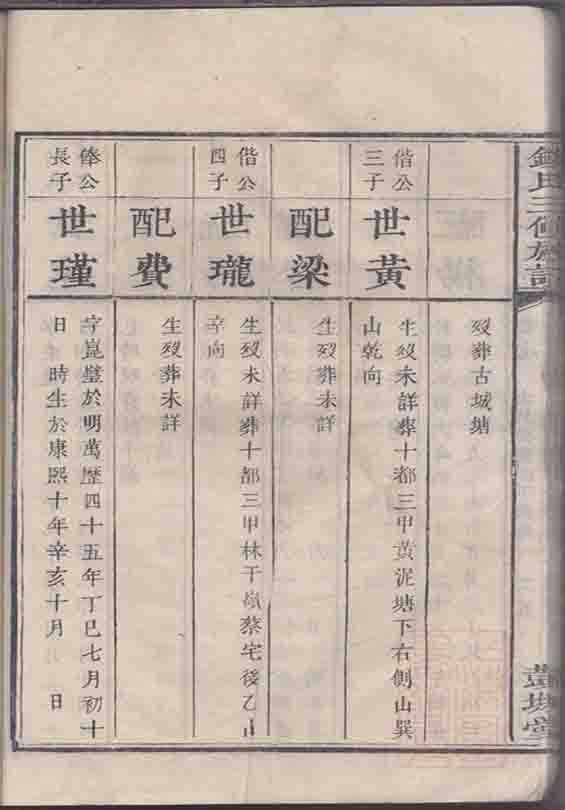 氏三修族
歿葬古城塘
偕公
三子
世黃
生歿未詳葬十都三甲黃泥塘下右側山巽
山乾向
配梁
生歿葬未詳
偕公
四子
世瓏
生歿未詳葬十都三甲林干嶺蔡宅後乙山
辛向
配費
生歿葬未詳
俸公
長子
世瑾
字崑璧於明萬歷四十五年丁巳七月初十
日 時生於康熙十年辛亥十月 日